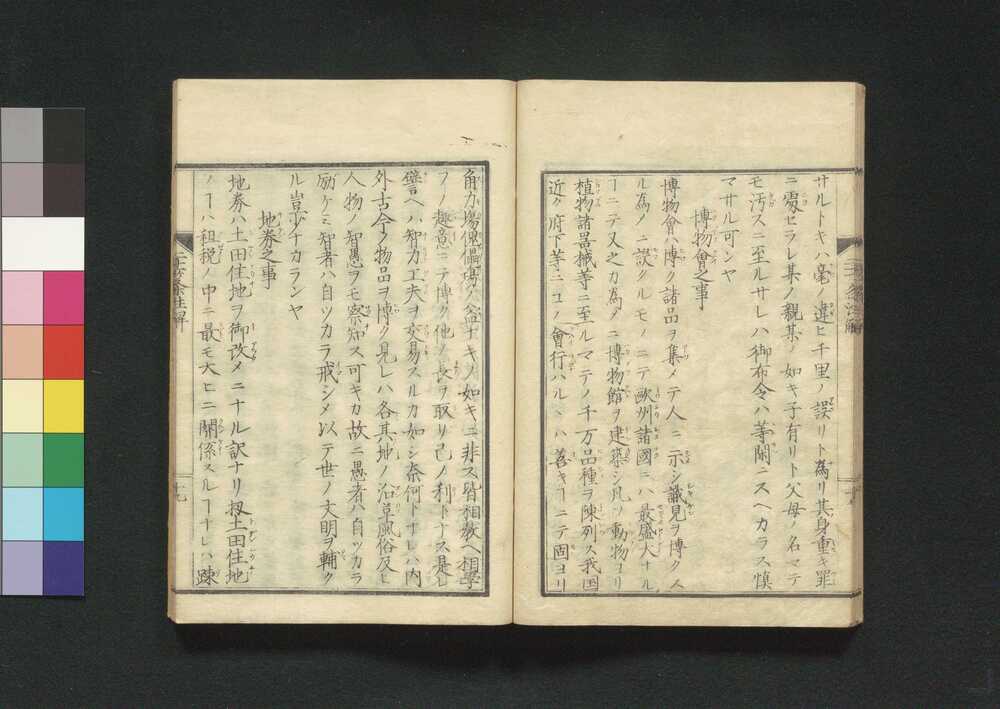 サルトキハ毫ノ違ヒ千里ノ誤リト為リ其身重キ罪
ニ處セラレ某ノ親某ノ如キ子有リト父母ノ名マテ
モ汚スニ至ルサレハ御布令ハ等閑ニスヘカラス慎
マサル可ンヤ
博物會之事
博物會ハ博ク諸品ヲ集メテ人ニ示シ識見ヲ博クス
ル為メニ設クルモノニテ歐州諸國ニハ最盛大ナル
ヿニテ又之カ為メニ博物館ヲ建築シ凡ソ動物ヨリ
植物諸噐械等ニ至ルマテノ千万品種ヲ陳列ス我国
近ク府下等ニコノ會行ハルヽハ善キヿニテ固ヨリ
角力場傀儡場ノ益ナキノ如キニ非ス皆相教ヘ相學
フノ趣意ニテ博ク他ノ長ヲ取リ己ノ利トナス是レ
譬ヘハ智力工夫ヲ交易スルカ如シ奈何トナレハ内
外古今ノ物品ヲ博ク見レハ各其地ノ沿革風俗及ヒ
人物ノ智愚ヲモ察知ス可キカ故ニ愚者ハ自ツカラ
励ケミ智者ハ自ツカラ戒シメ以テ世ノ文明ヲ輔ク
ル豈少ナカランヤ
地券之事
地券ハ土田住地ヲ御改メニナル訳ナリ扨土田住地
ノヿハ租税ノ中ニ最モ大ヒニ關係スルヿナレハ踈
十九